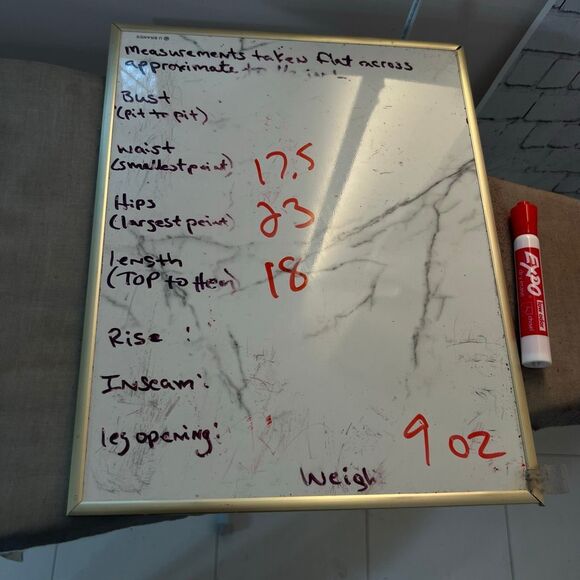 U BRANDS
measurements taken flat across
approximate
Bust
(pit to pit)
waist
(smallest point) 17.5
Hips
(largest point) 23
length
(TOP to Hem) 18
Rise :
Inseam:
leg opening:
9 oz
Weigh
EXPO